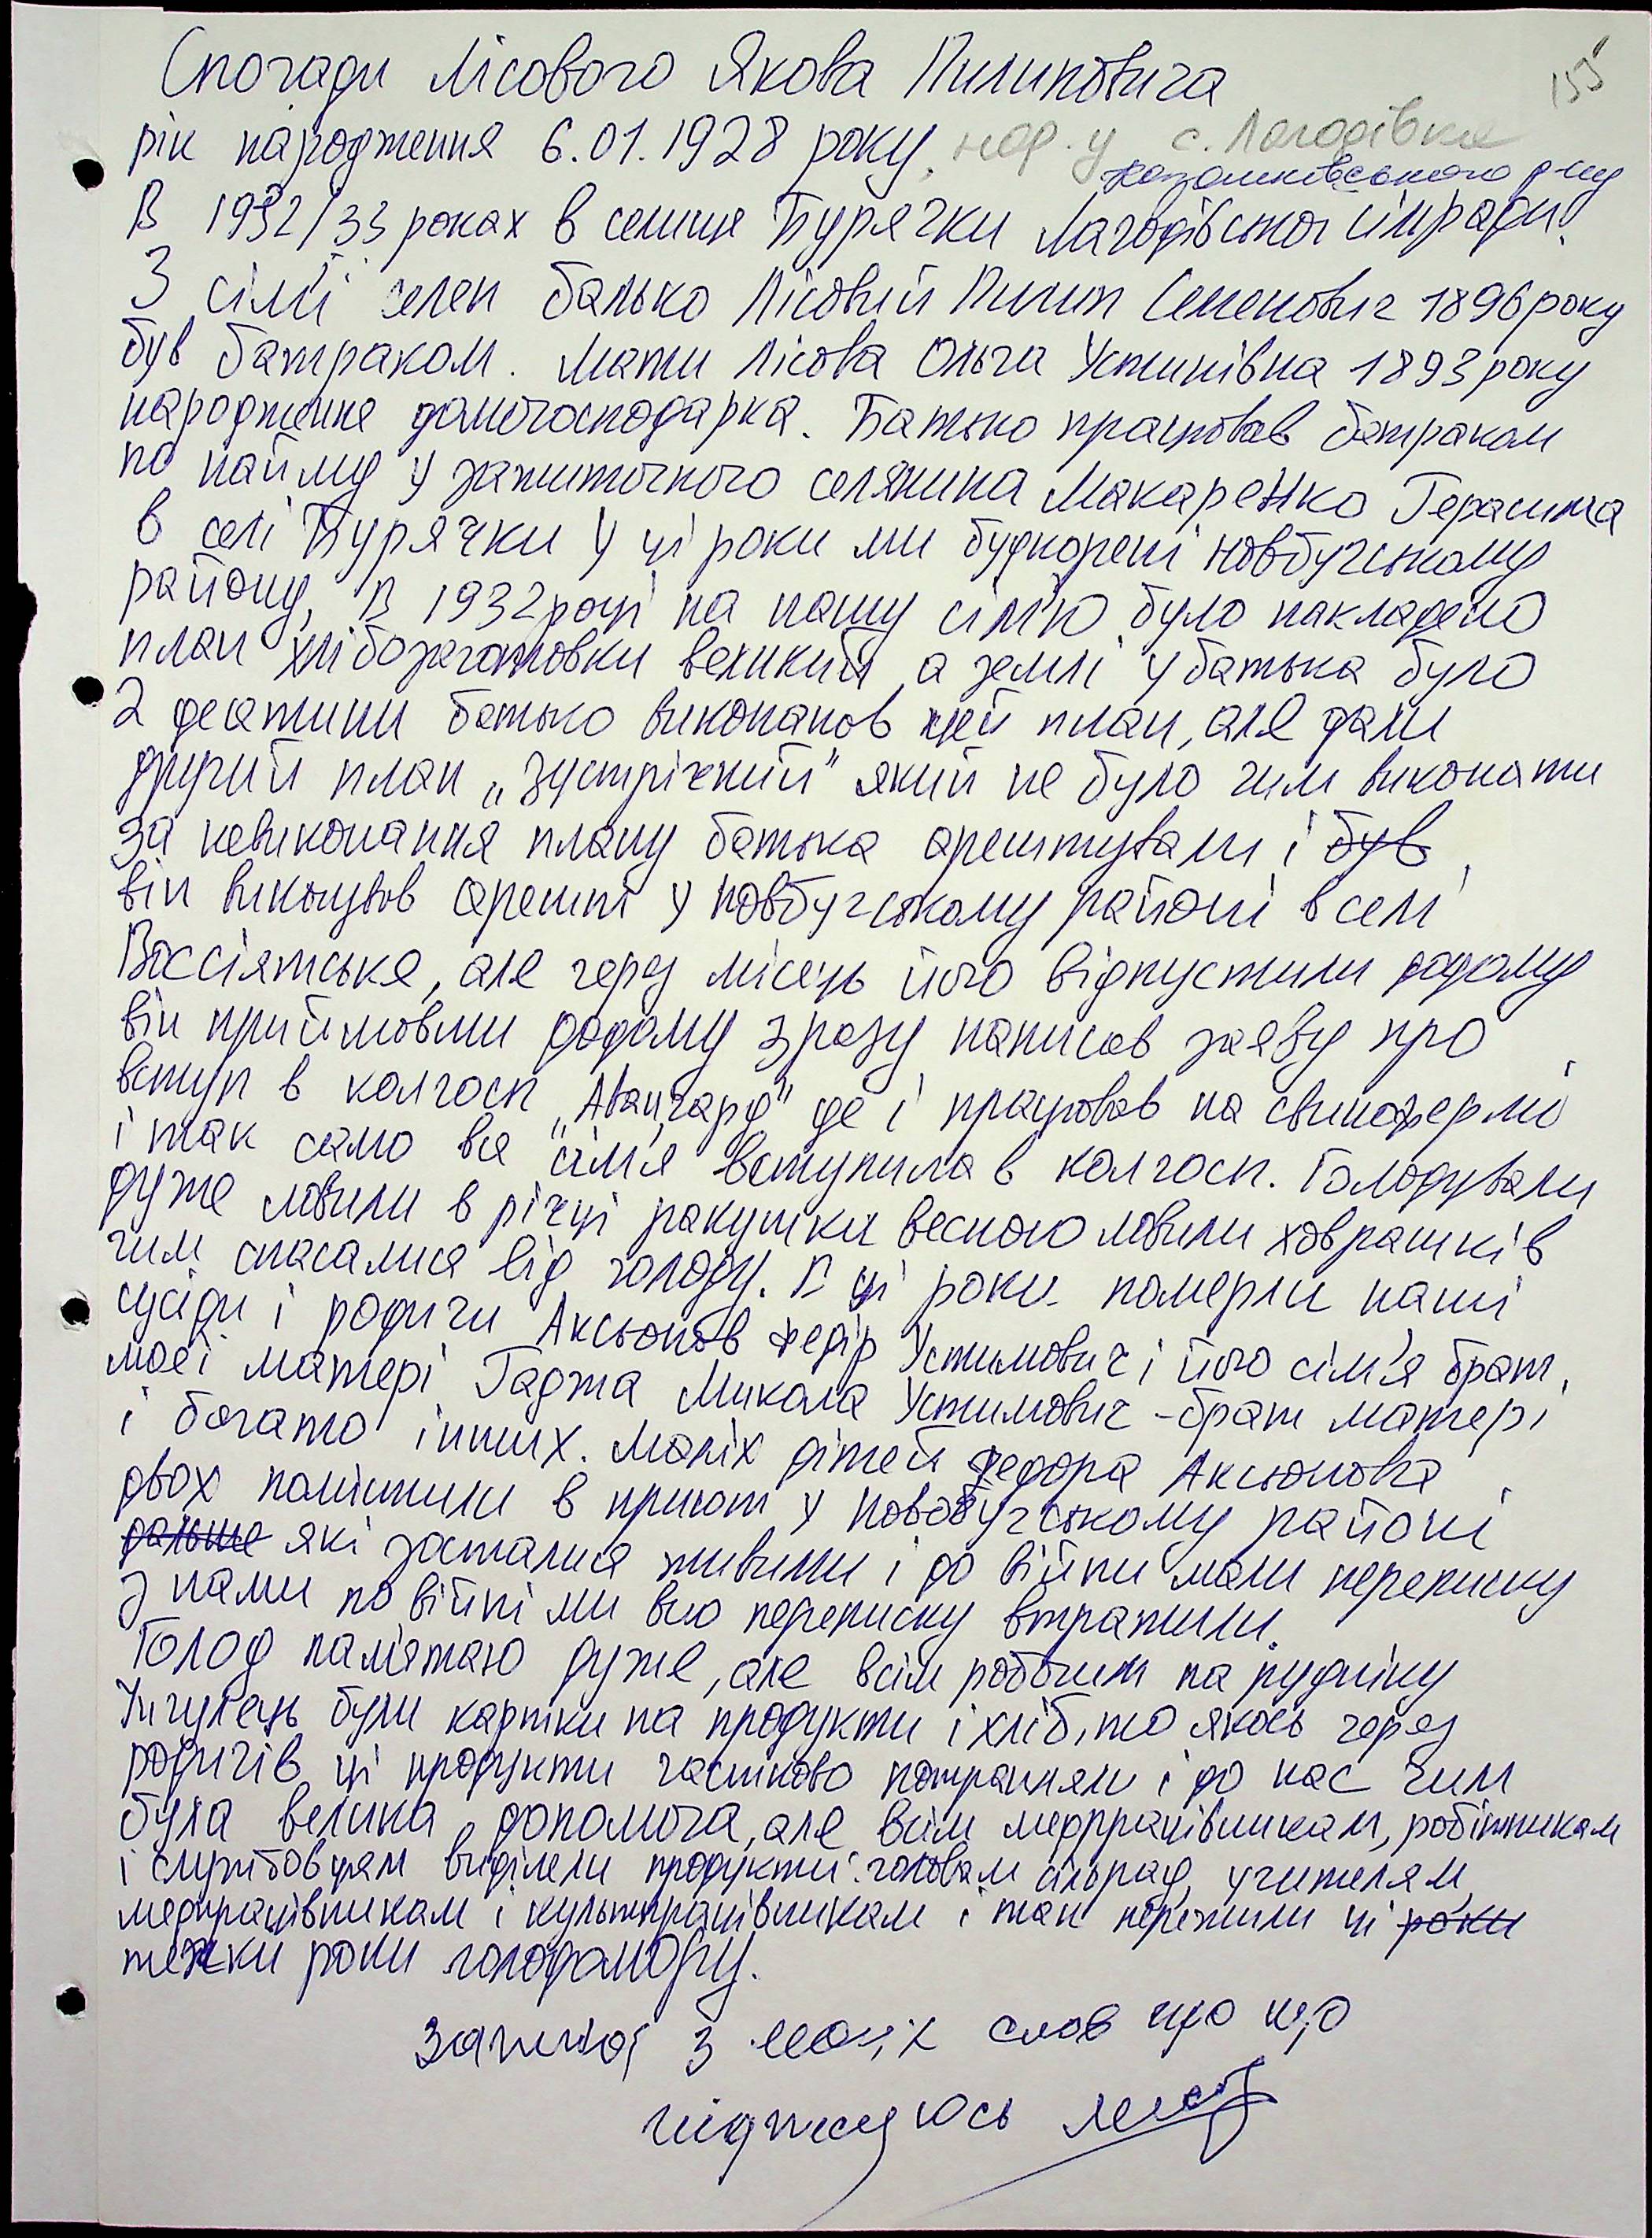 Спогади Лісового Якова Пилиповича
155
рік народження 6.01.1928 року, нар. у с. Лагодівка
Казанківського р-ну
В 1932/33 роках в селище Бурячки Лагодівської сільради.
З сім'ї селян батько Лісовий Пилип Семенович 1896 року
був батраком. Мати Лісова Ольга Устинівна 1893 року
народження домогосподарка. Батько працював батраком
по найму у зажиточного селянина Макаренко Герасима
в селі Бурячки У ці роки ми були Новбузькому
району, В 1932 році на нашу сім'ю було накладено
план хлібозаготовки великий а землі у батька було
2 десятини батько виконанов цей план, але дали
другий план „зустрічний" який не було чим виконати
За невиконання плану батька арештували і був
він виконував арешт у Новбузькому районі в селі
Воссіятське, але через місяць його відпустили додому
він прийшовши додому зразу написав заяву про
вступ в колгосп „Авангард" де і працював на свинофермі
і так само вся сім'я вступила в колгосп. Голодували
дуже ловили в річці ракушки весною ловили ховрашків
чим спасалися від голоду. В ці роки померли наші
сусіди і родичи Аксьонов Федір Устимович і його сім'я брат,
моєї матері Гаджа Микола Устимович - брат матері
і богато інших. Маліх дітей Федора Аксьонова
двох помістили в приют у Новобузському районі
дальше які зосталися живими і до війни мали переписку
з нами по війні ми всю переписку втратили.
Голод памятаю дуже, але всім робочим на руднику
Інгулець були картки на продукти і хліб, то якось через
родичів ці продукти частково потрапляли і до нас Чим
була велика допомога, але всім медпрацівникам, робітникам
і службовцям виділели продукти: головам сільрад, учителям
медпрацівникам і культпрацівникам і так пережили ці роки
тежки роки голодомору.
Записа з моїх слов про що
підписуюсь